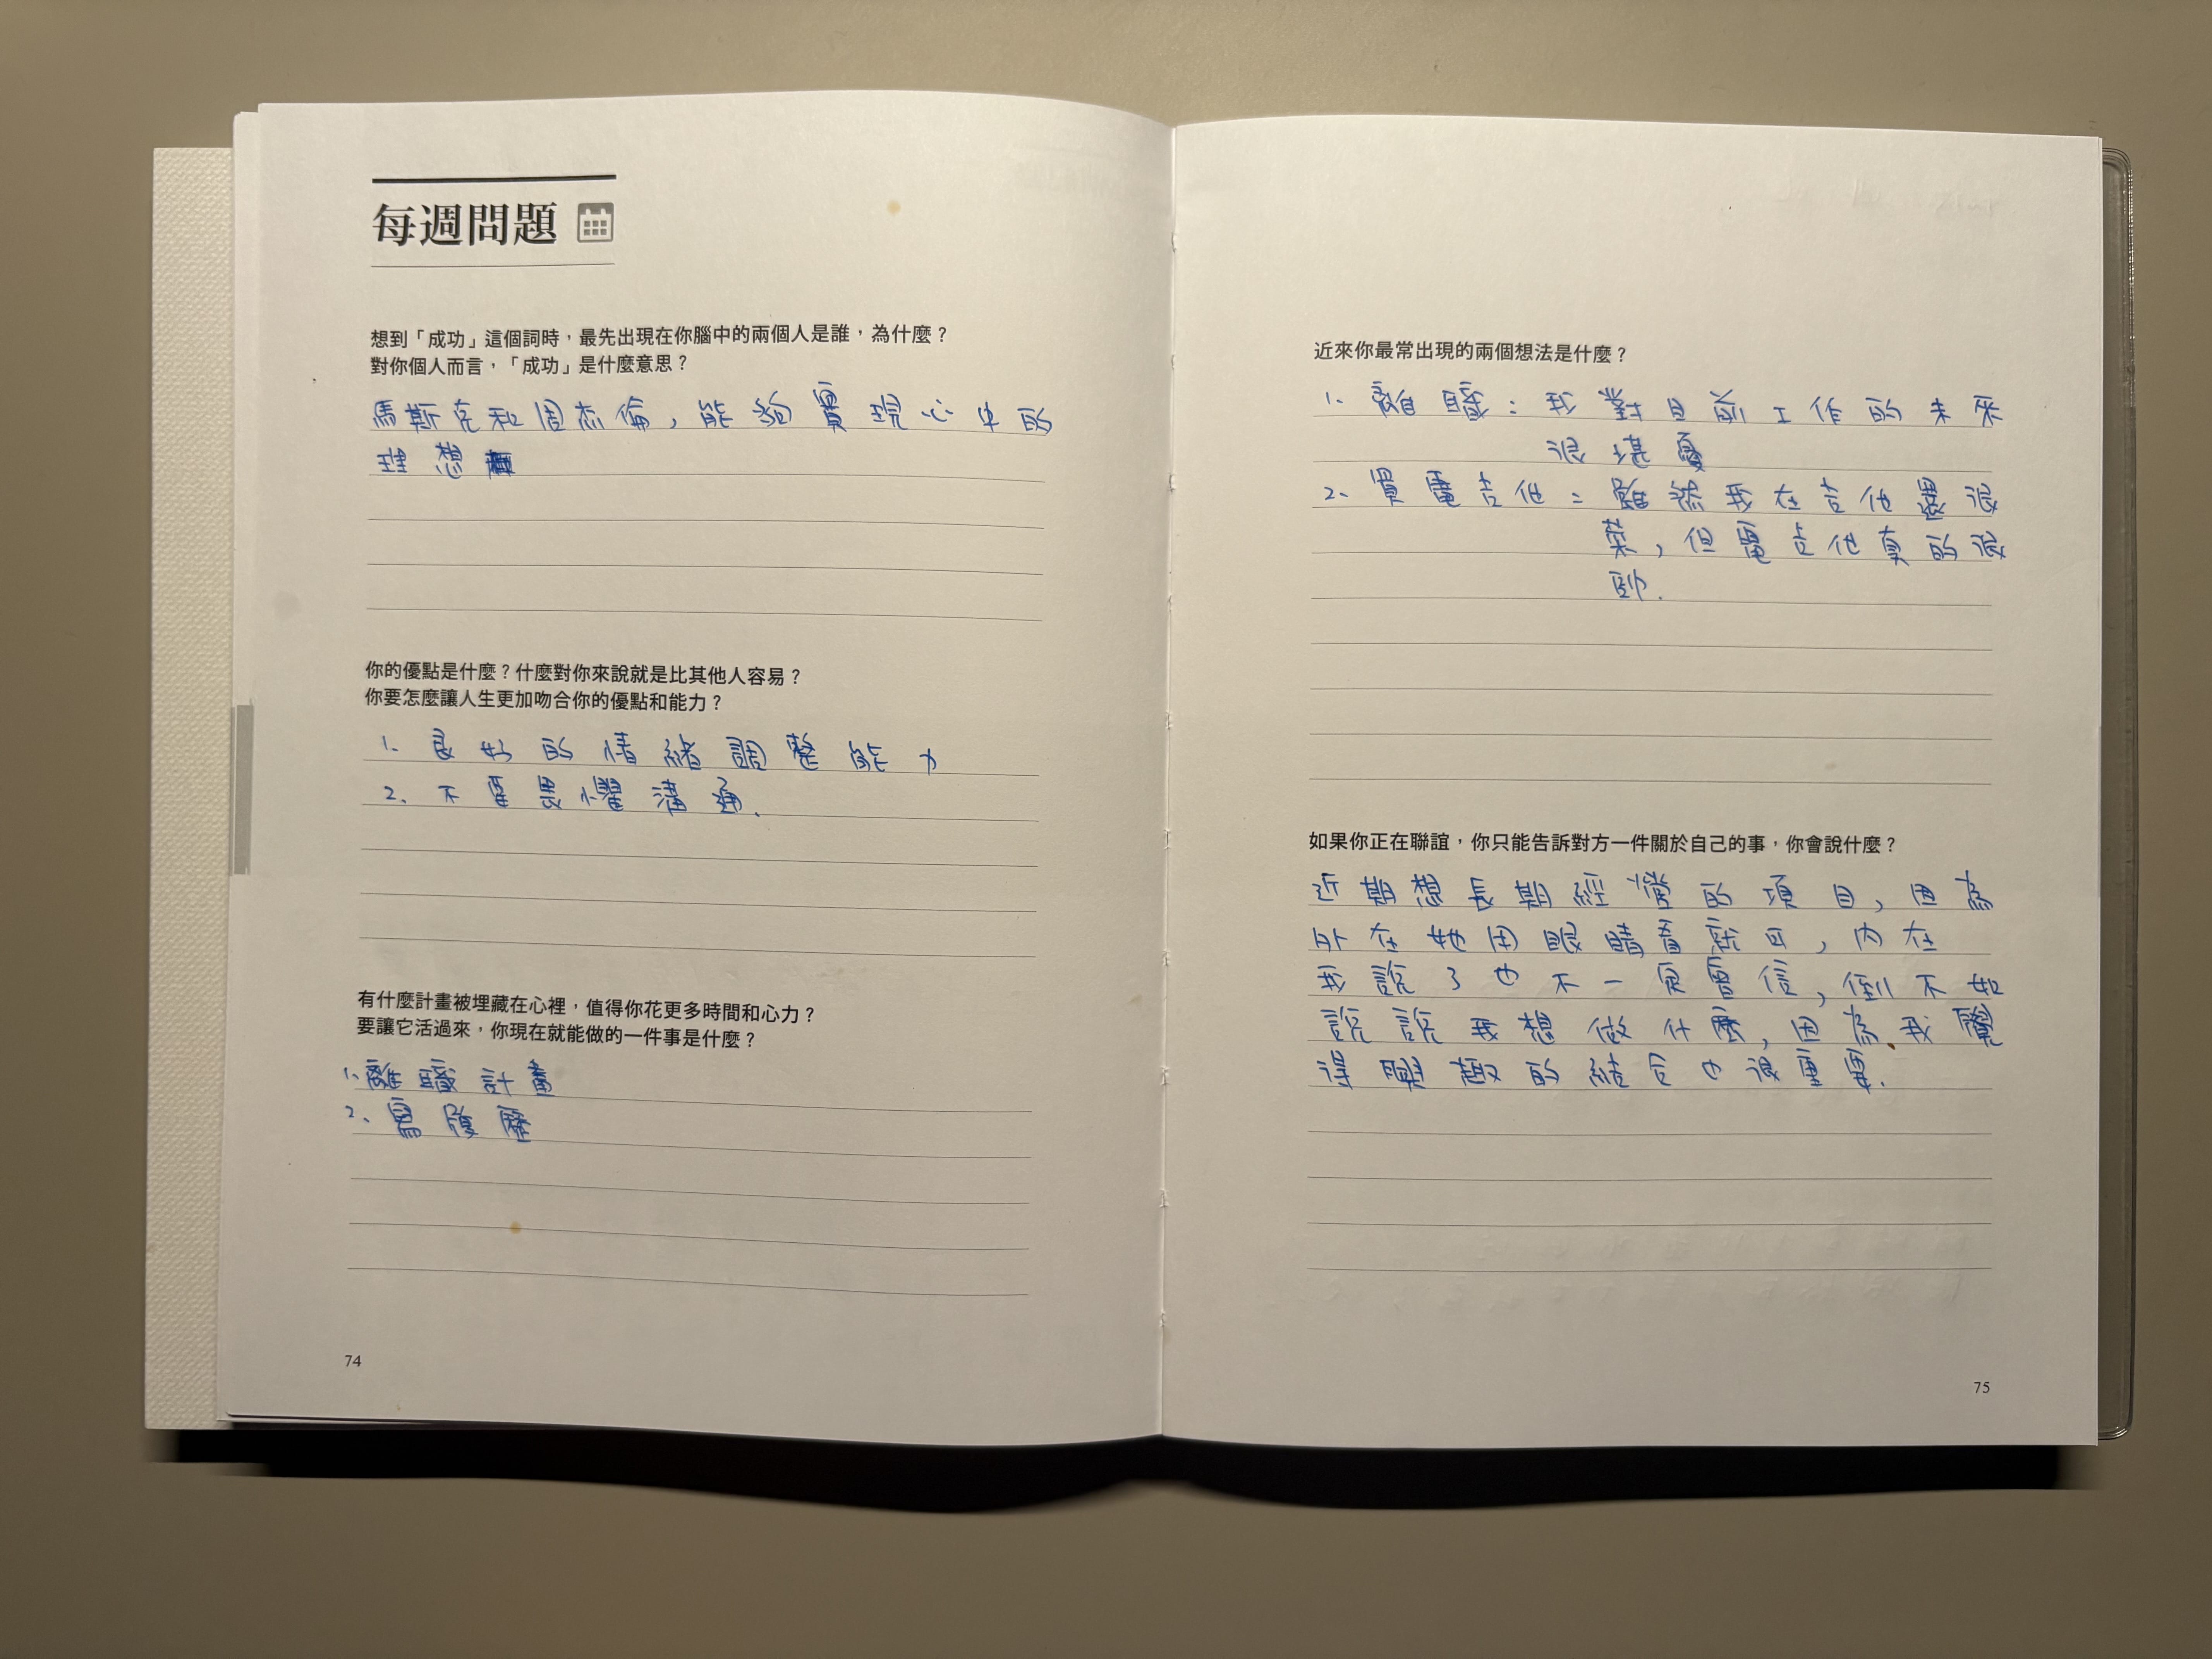 每週問題
想到「成功」這個詞時，最先出現在你腦中的兩個人是誰，為什麼？
對你個人而言，「成功」是什麼意思？
馬斯克和周杰倫，能夠實現心中的
理想
你的優點是什麼？什麼對你來說就是比其他人容易？
你要怎麼讓人生更加吻合你的優點和能力？
1. 良好的情緒調整能力
2. 不要畏懼溝通.
有什麼計畫被埋藏在心裡，值得你花更多時間和心力？
要讓它活過來，你現在就能做的一件事是什麼？
1. 離職計畫
2. 寫履歷
74
近來你最常出現的兩個想法是什麼？
1. 離職：我對目前工作的未來
很堪憂
2. 買電吉他：雖然我在吉他還很
菜，但電吉他真的很
帥.
如果你正在聯誼，你只能告訴對方一件關於自己的事，你會說什麼？
近期想長期經營的項目，因為
外在她用眼睛看就可，內在
我說了也不一定會信，倒不如
說說我想做什麼，因為我覺
得興趣的結合也很重要.
75